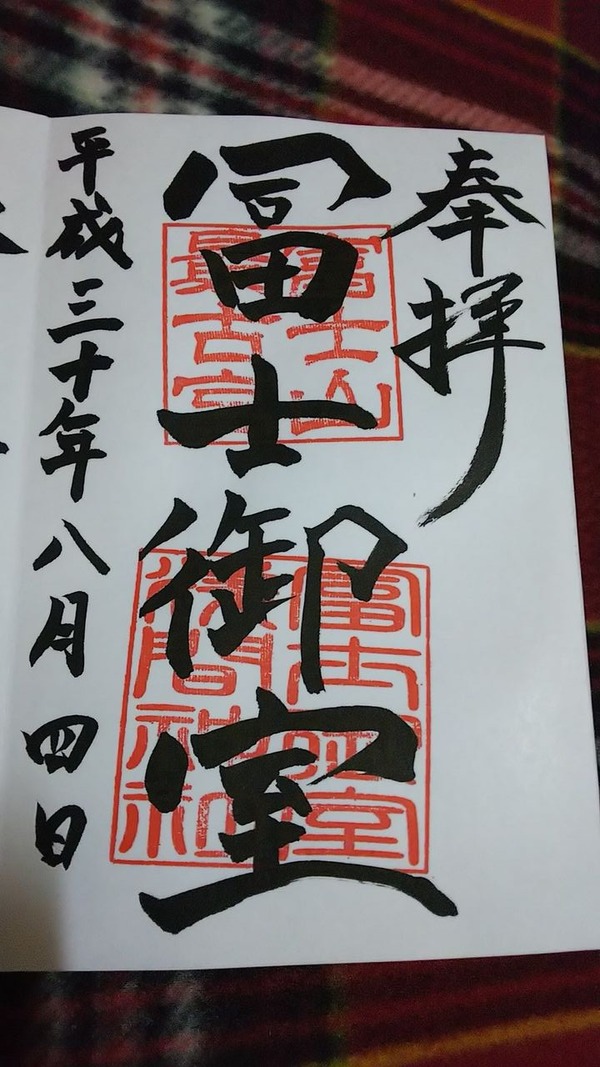 奉拝
冨士御室
富士山
最古宮
冨士御室
浅間神社
平成三十年八月四日